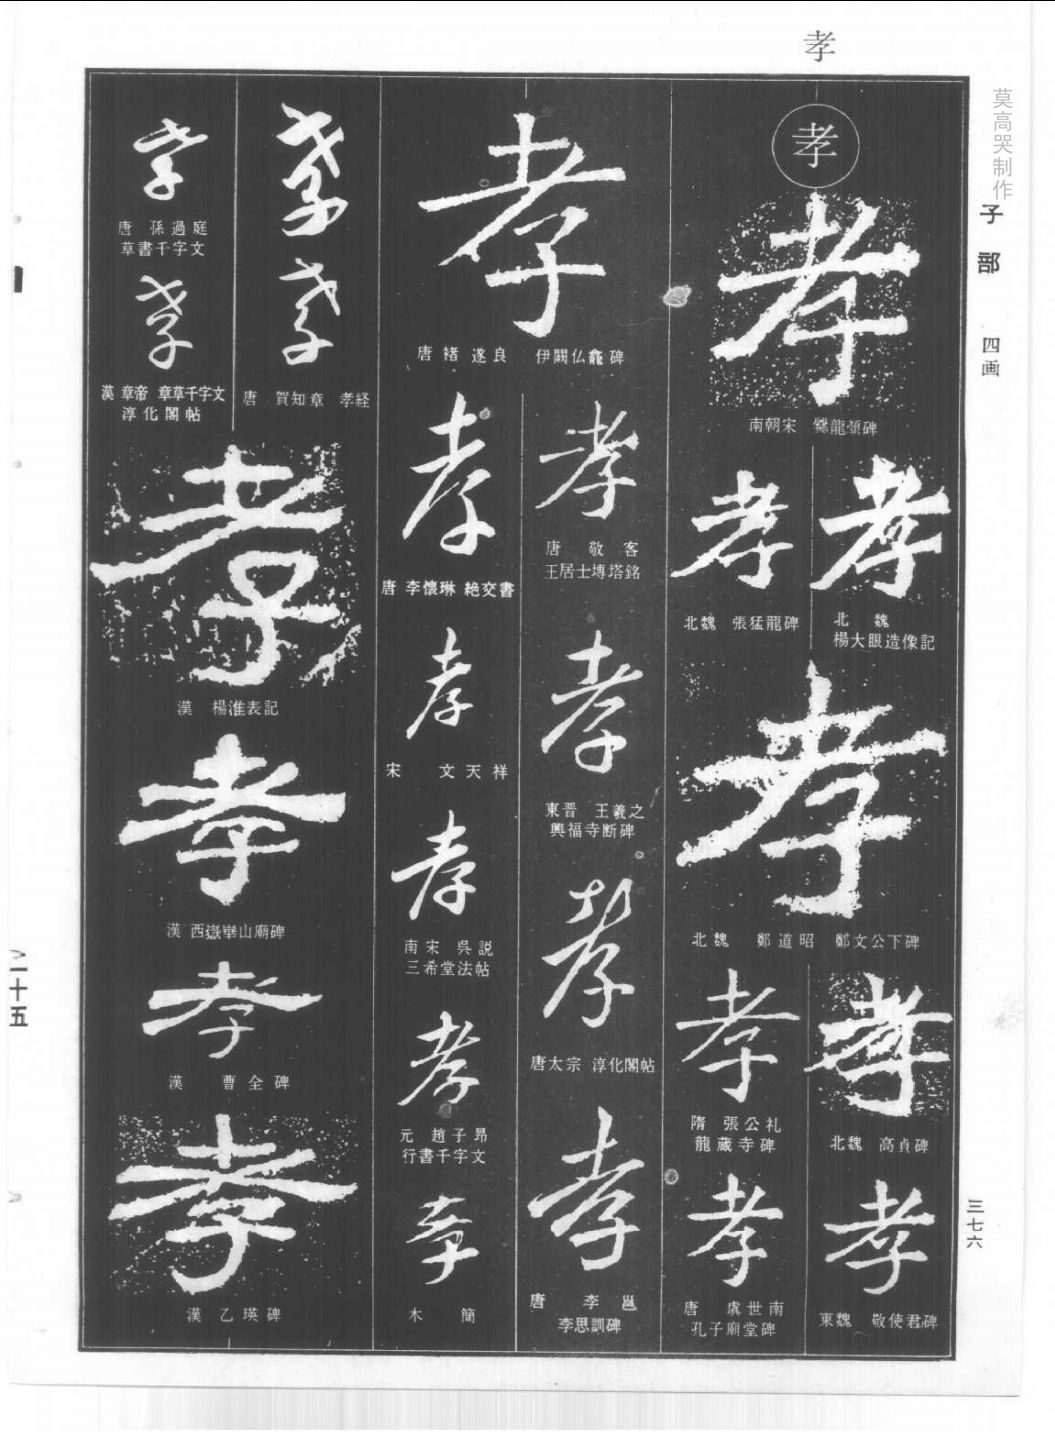 孝
莫高哭制作
子部
四画
三七六
孝
孝
南朝宋 爨龍顏碑
孝
北魏
楊大眼造像記
孝
北魏 張猛龍碑
孝
北魏 鄭道昭 鄭文公下碑
孝
北魏 高貞碑
孝
隋 張公礼
龍蔵寺碑
孝
東魏 敬使君碑
孝
唐 虞世南
孔子廟堂碑
孝
唐 褚遂良 伊闕仏龕碑
孝
唐 敬客
王居士塼塔銘
孝
東晋 王羲之
興福寺断碑
孝
唐太宗 淳化閣帖
孝
唐 李邕
李思訓碑
孝
唐 李懐琳 絶交書
孝
宋 文天祥
孝
南宋 呉説
三希堂法帖
孝
元 趙子昂
行書千字文
孝
木簡
孝
孝
唐 賀知章 孝経
孝
唐 孫過庭
草書千字文
孝
漢 章帝 章草千字文
淳化閣帖
孝
漢 楊淮表記
孝
漢 西嶽華山廟碑
孝
漢 曹全碑
孝
漢 乙瑛碑
二十五